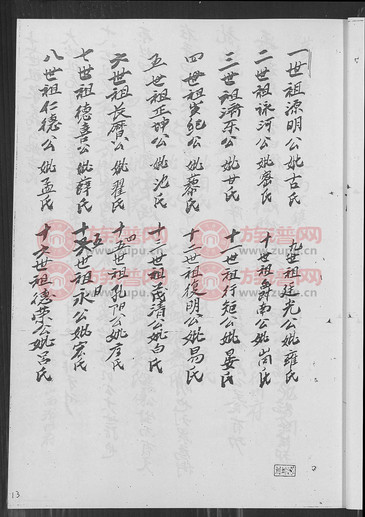 一世祖源明公妣古氏
二世祖詠河公妣密氏
三世祖済乐公妣廿氏
四世祖 紀公妣蔡氏
五世祖正坤公妣池氏
六世祖長 公妣翟氏
七世祖德喜公妣薛氏
八世祖仁德公妣孟氏
九世祖廷光公妣雍氏
十世祖爵南公妣尚氏
十一世祖行矩公妣晏氏
十二世祖復明公妣易氏
十三世祖茂清公妣白氏
十四世祖孔阳公妣彦氏
十五世祖永 公妣宏氏
十六世祖德荣公妣吕氏
族谱网
13